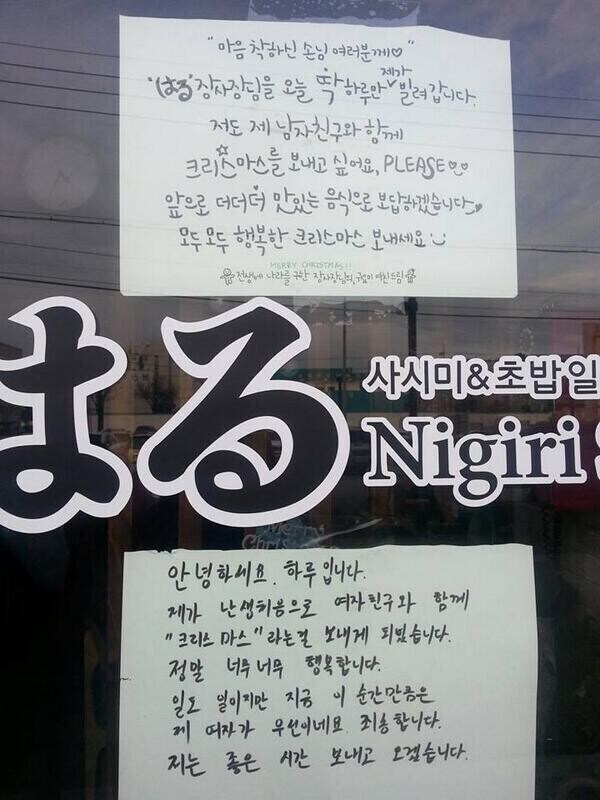 "마음 착하신 손님 여러분께♡"
'はる' 장사장님을 오늘 딱 하루만 제가 빌려갑니다.
저도 제 남자친구와 함께
크리스마스를 보내고 싶어요, PLEASE
앞으로 더더더 맛있는 음식으로 보답하겠습니다
모두 모두 행복한 크리스마스 보내세요
MERRY CHRISTMAS!!
전생에 나라를 구한 장사장님의, 여친드림
はる
사시미&초밥 일
Nigiri
Merry
Chris
안녕하세요. 하루입니다.
제가 난생처음으로 여자친구와 함께
"크리스마스"라는걸 보내게 되었습니다.
정말 너무너무 행복합니다.
일도 일이지만 지금 이 순간만큼은
제 여자가 우선이네요 죄송합니다.
저는 좋은 시간 보내고 오겠습니다.